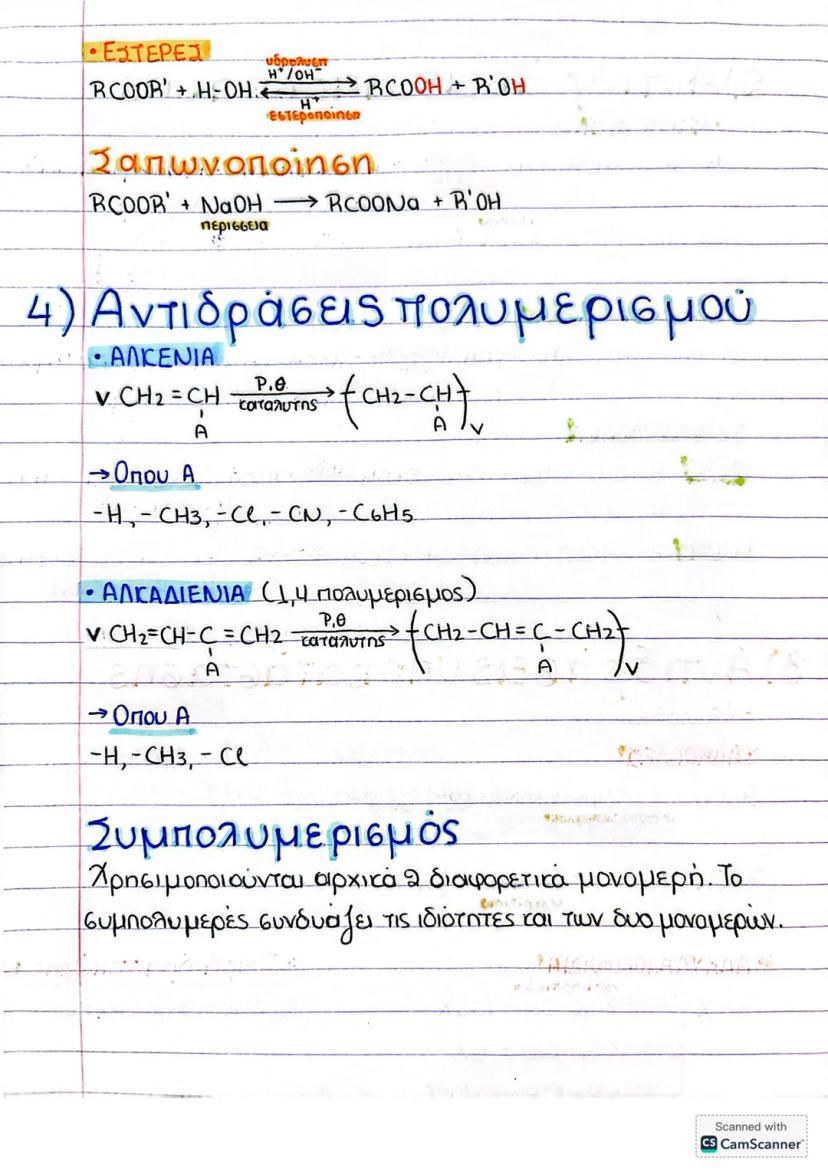 • ΕΣΤΕΡΕΣ
υδρολυση
H⁺/OH⁻
RCOOR' + H-OH ⇌ RCOOH + R'OH
H⁺
εστεροποίηση
Σαπωνοποίηση
RCOOR' + NaOH → RCOONa + R'OH
περισσεια
4) Αντιδράσεις πολυμερισμού
• ΑΛΚΕΝΙΑ
P,θ
ν CH2 = CH → ( CH2-CH )ν
καταλυτης
A A
→ Οπου A
-H, -CH3, -Cl, -CN, -C6H5
• ΑΛΚΑΔΙΕΝΙΑ (1,4 πολυμερισμος)
P,θ
ν CH2=CH-C =CH2 → ( CH2-CH = C - CH2 )ν
καταλυτης
A A
→ Οπου A
-H, -CH3, - Cl
Συμπολυμερισμός
Χρησιμοποιούνται αρχικά 2 διαφορετικά μονομερή. Το
συμπολυμερές συνδυάζει τις ιδιότητες και των δυο μονομερών.
Scanned with
CS CamScanner